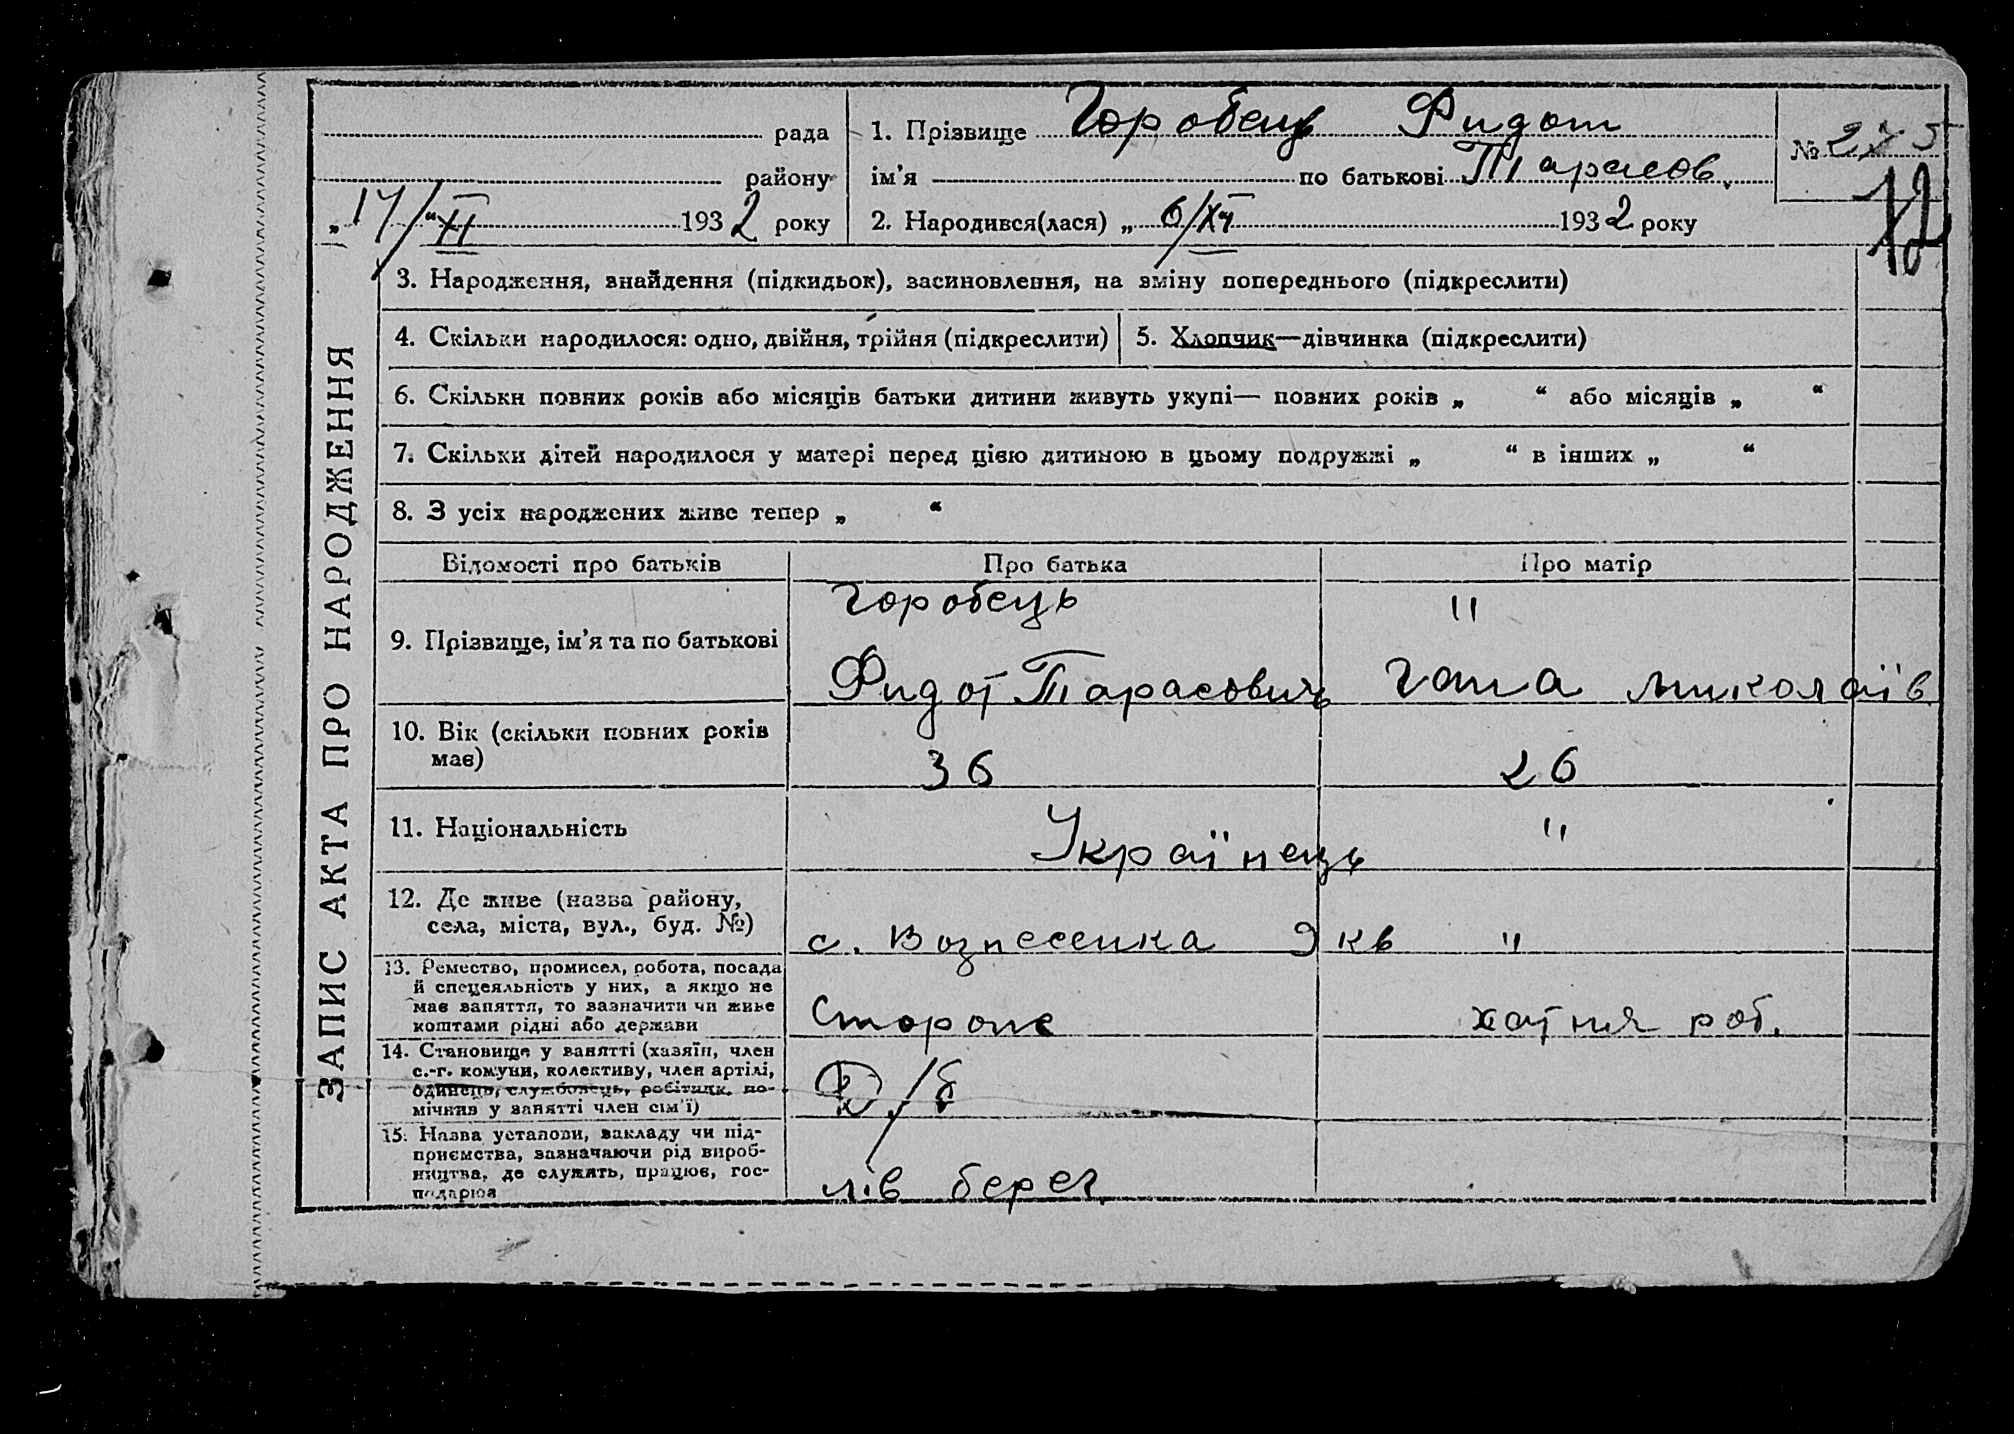 рада
району
„17/XI“ 1932 року
1. Прізвище Горобець Фидот
ім'я по батькові Тарасов.
2. Народився(лася) „6/XI 1932 року
№ 275
12
ЗАПИС АКТА ПРО НАРОДЖЕННЯ
3. Народження, знайдення (підкидьок), засиновлення, на зміну попереднього (підкреслити)
4. Скільки народилося: одно, двійня, трійня (підкреслити)
5. Хлопчик—дівчинка (підкреслити)
6. Скільки повних років або місяців батьки дитини живуть укупі— повних років „ “ або місяців „ “
7. Скільки дітей народилося у матері перед цією дитиною в цьому подружжі „ “ в інших „ “
8. З усіх народжених живе тепер „ “
Відомості про батьків Про батька Про матір
Горобець "
9. Прізвище, ім'я та по батькові
Фидот Тарасович Гана миколаїв
10. Вік (скільки повних років
має)
36 26
11. Національність
Українець "
12. Де живе (назва району,
села, міста, вул., буд. №)
с. Вознесенка 9 кв "
13. Ремество, промисел, робота, посада
й спецеяльність у них, а якщо не
має заняття, то зазначити чи живе
коштами рідні або держави
Сторож хатня роб.
14. Становище у занятті (хазяїн, член
с.-г. комуни, колективу, член артілі,
одинець, службовець, робітник, по-
мічник у занятті член сім'ї)
15. Назва установи, закладу чи під-
приємства, зазначаючи рід вироб-
ництва, де служить, працює, гос-
подарює
лів берег.